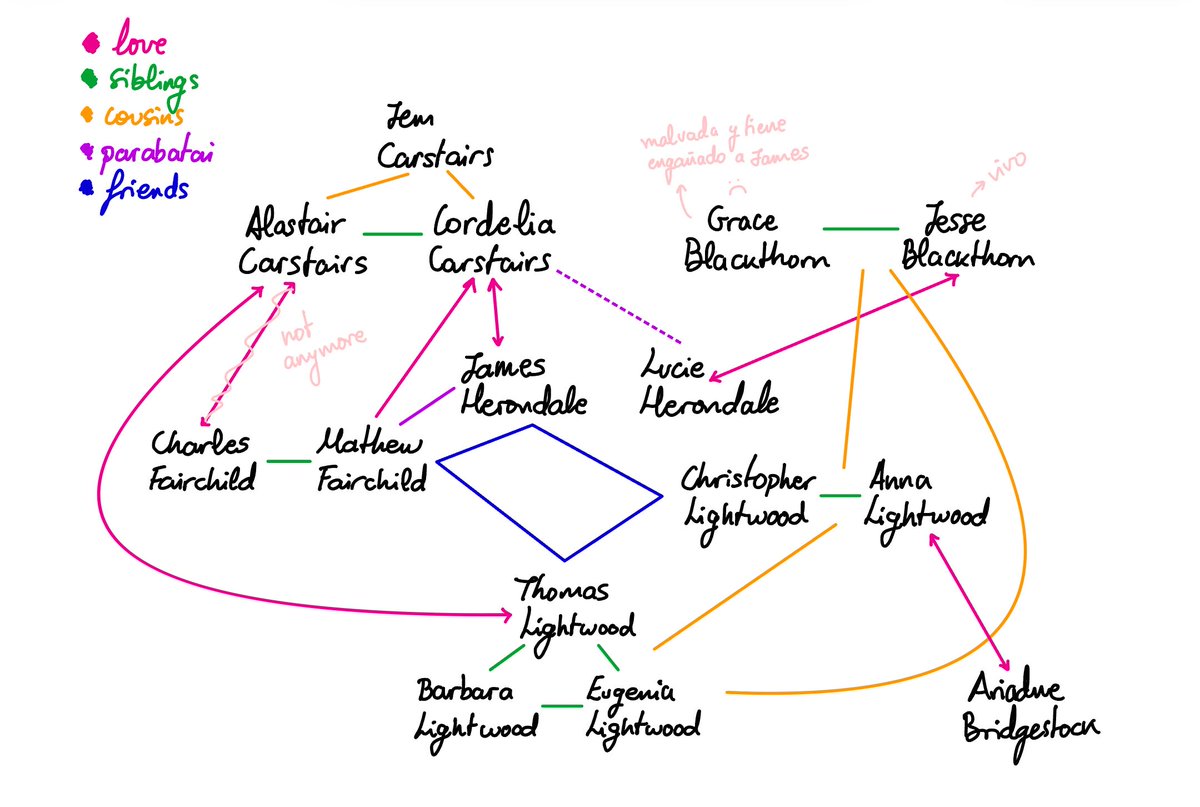 love
siblings
cousins
parabatai
friends
Jem
Carstairs
malvada y tiene
engañado a James
:(
vivo
Alastair
Carstairs
Cordelia
Carstairs
Grace
Blackthorn
Jesse
Blackthorn
not
anymore
James
Herondale
Lucie
Herondale
Charles
Fairchild
Mathew
Fairchild
Christopher
Lightwood
Anna
Lightwood
Thomas
Lightwood
Barbara
Lightwood
Eugenia
Lightwood
Ariadne
Bridgestock